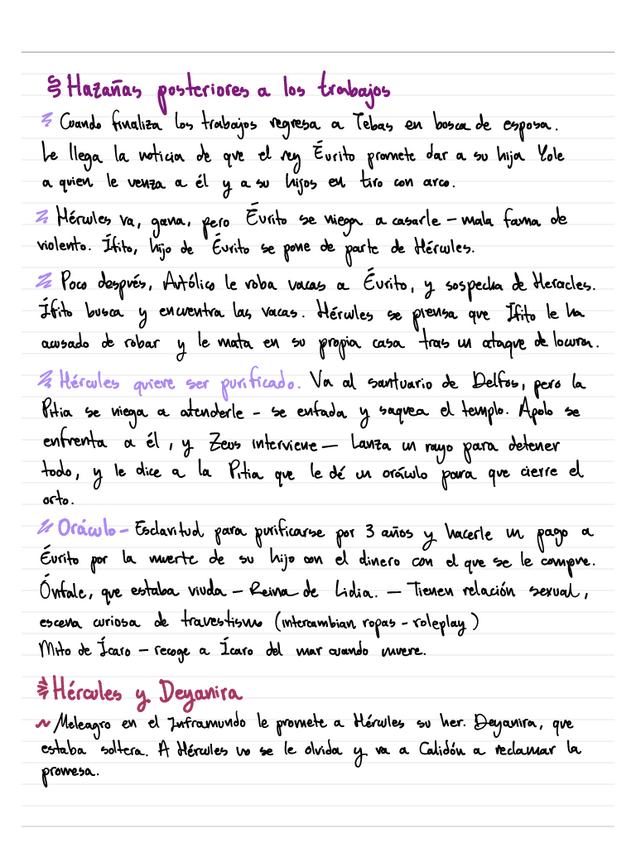 Hazañas posteriores a los trabajos
Cuando finaliza los trabajos regresa a Tebas en busca de esposa.
Le llega la noticia de que el rey Éurito promete dar a su hija Yole
a quien le venza a él y a su hijos en tiro con arco.
Hércules va, gana, pero Éurito se niega a casarle – mala fama de
violento. Ífito, hijo de Éurito se pone de parte de Hércules.
Poco después, Autólico le roba vacas a Éurito, y sospecha de Heracles.
Ífito busca y encuentra las vacas. Hércules se piensa que Ífito le ha
acusado de robar y le mata en su propia casa tras un ataque de locura.
Hércules quiere ser purificado. Va al santuario de Delfos, pero la
Pitia se niega a atenderle – se enfada y saquea el templo. Apolo se
enfrenta a él, y Zeus interviene — Lanza un rayo para detener
todo, y le dice a la Pitia que le dé un oráculo para que cierre el
orto.
Oráculo – Esclavitud para purificarse por 3 años y hacerle un pago a
Éurito por la muerte de su hijo con el dinero con el que se le compre.
Ónfale, que estaba viuda – Reina de Lidia. — Tienen relación sexual,
escena curiosa de travestismo (intercambian ropas – roleplay)
Mito de Ícaro – recoge a Ícaro del mar cuando muere.
Hércules y Deyanira
Meleagro en el Inframundo le promete a Hércules su her. Deyanira, que
estaba soltera. A Hércules no se le olvida y va a Calidón a reclamar la
promesa.